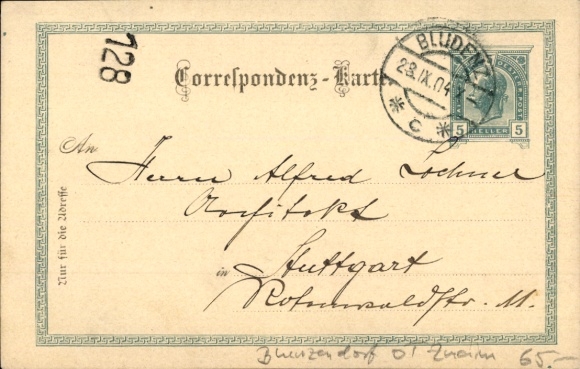 128
Correspondenz-Karte
BLUDENZ
28.IX.04
* c *
5 HELLER 5
An
Herrn Alfred Lochner
Architekt
in Stuttgart
Rotenwaldstr.
Nur für die Adresse
65.-